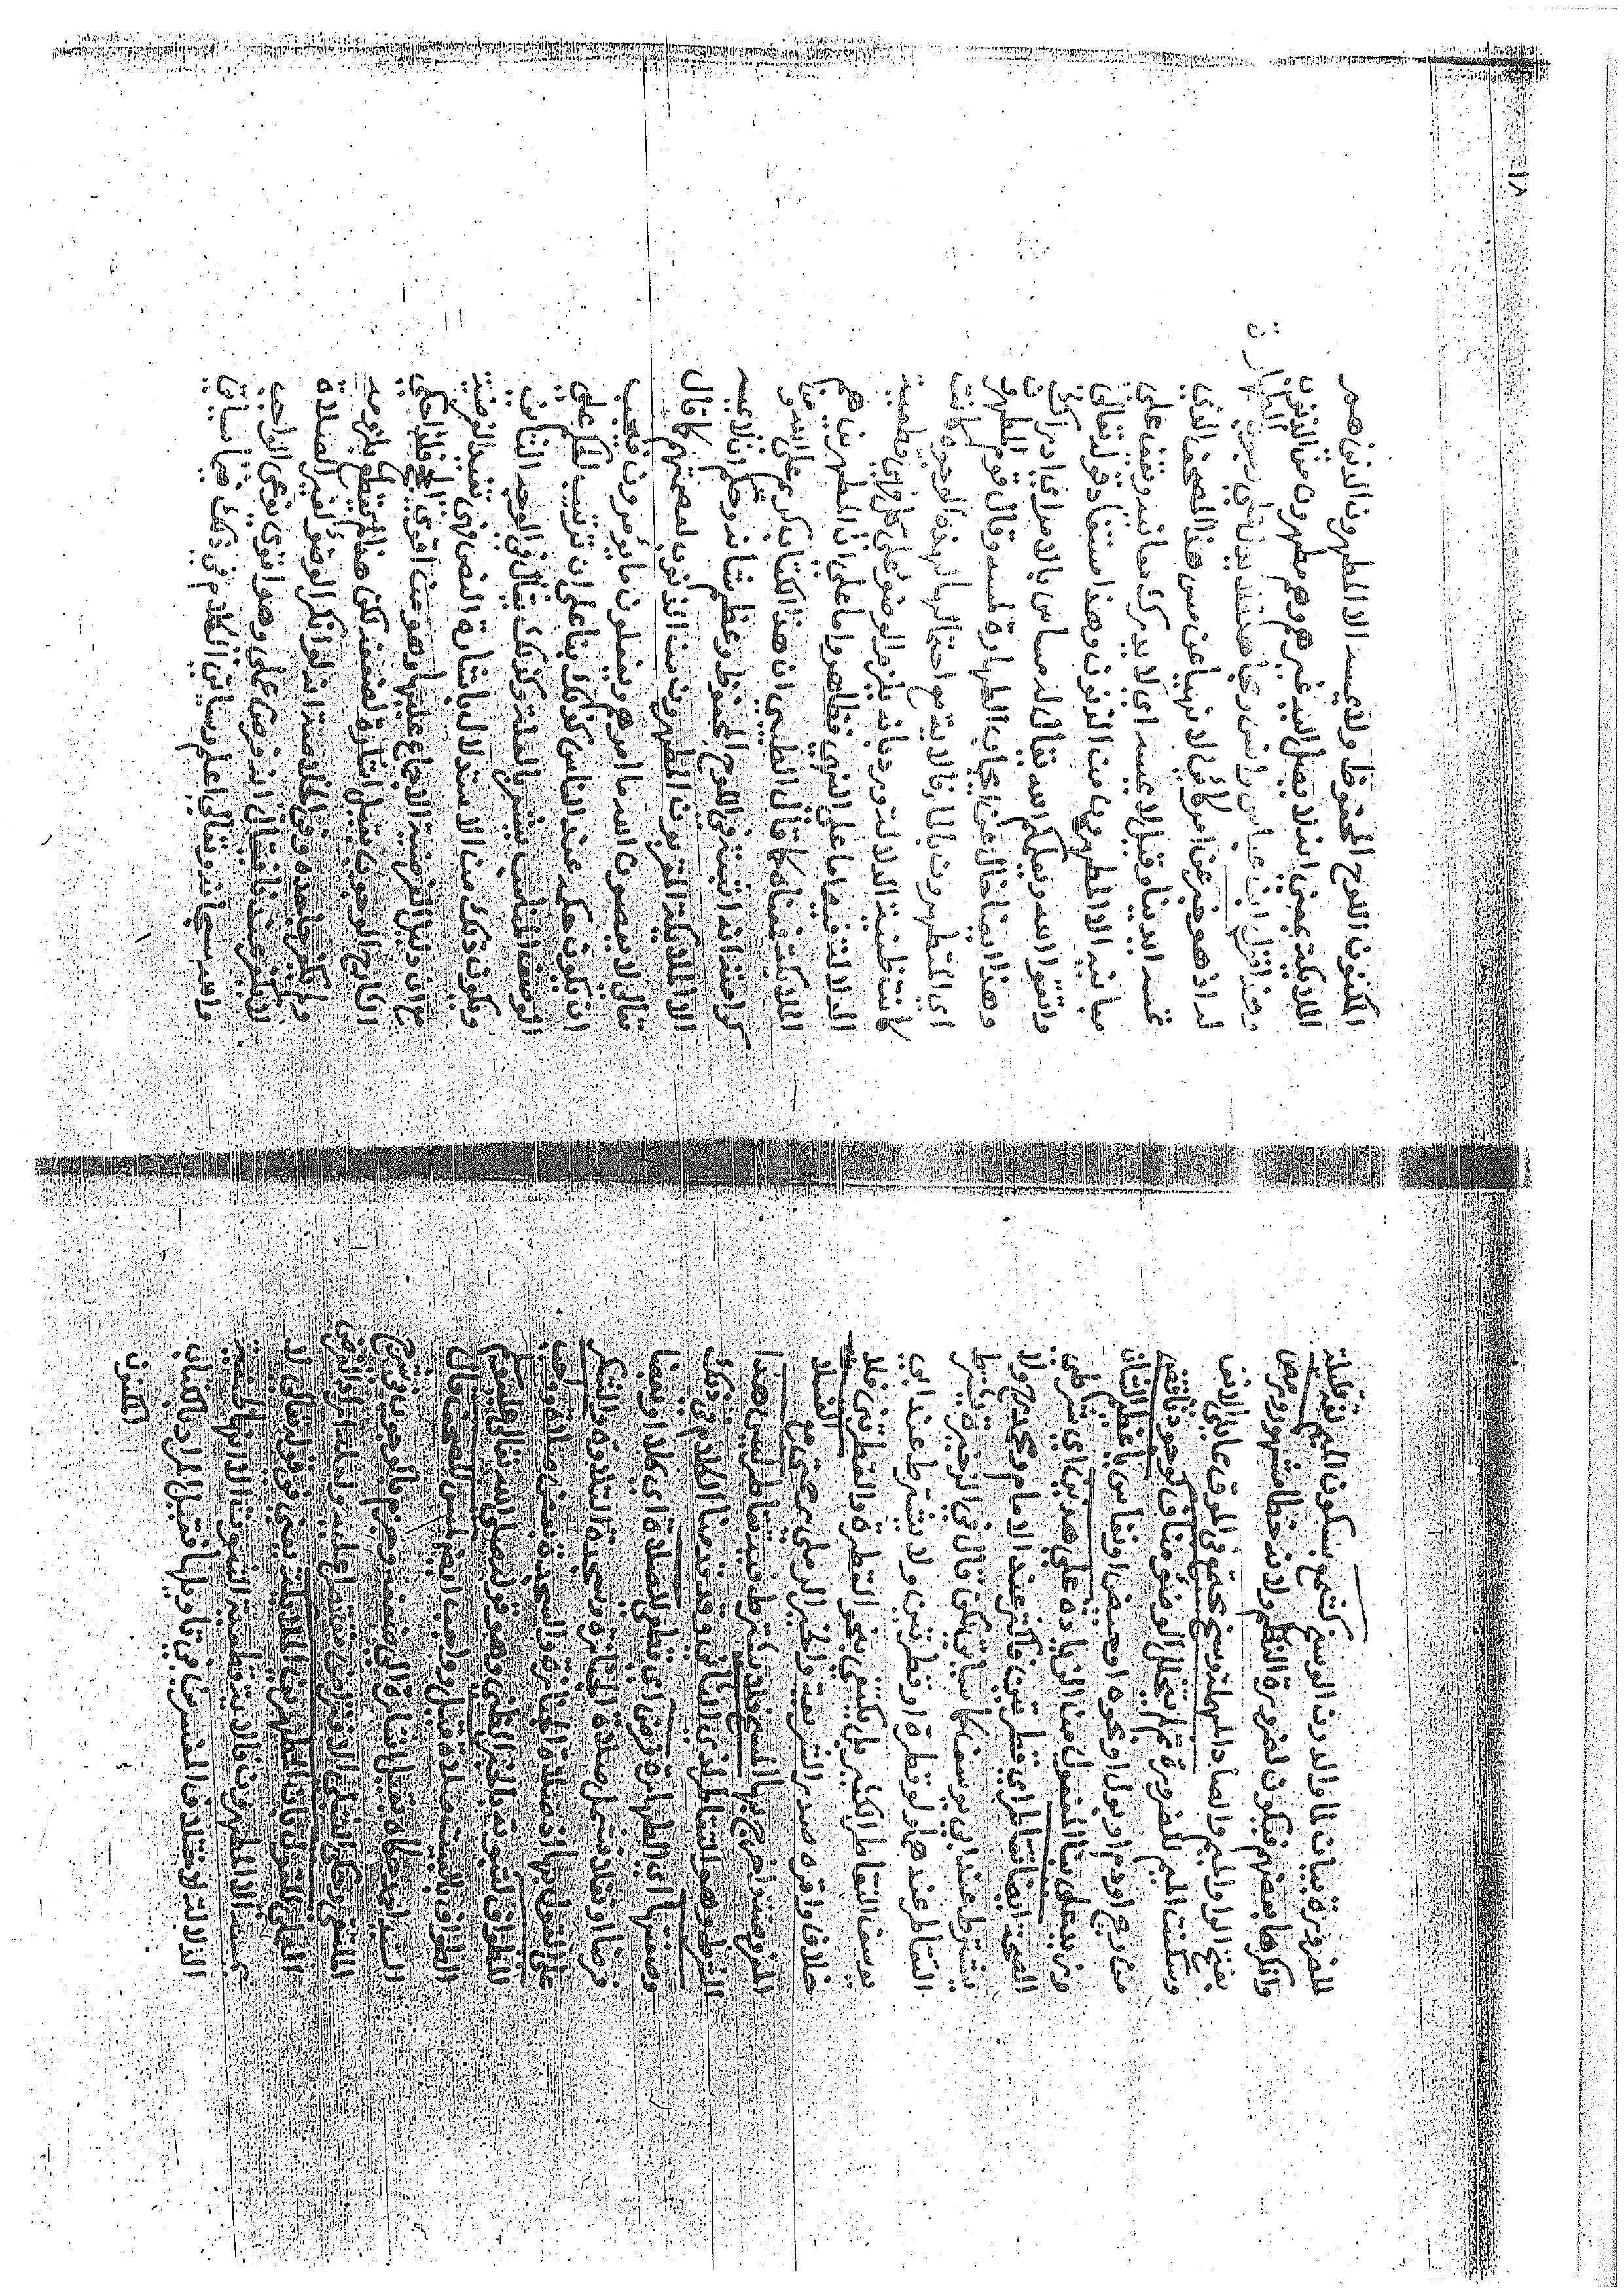 للضرورة بيانا لما والدرن الوسخ كشمع بسكون الميم لغة قليلة
وانكرها بعضهم فيكون لضرورة النظم ولانه خطا مشهور ورمص
بفتح الراء والميم والصاد المهملة وسخ يجتمع في الموق مما يلي الانف
وسكنت الميم للضرورة ثم تخلل الوضوء مناف كوجود ناقض
من ريح او دم او بول او نحوه او حيض او نفاس يا عظم الشان
وزيد على ذا المنقول من الزيادة على هذين اي شرطي
الصحة ايضا تقاطر اي قطرتين فاكثر عند الامام ومحمد رح ولا
يشترط عند ابي يوسف كما سياتي لكن قال في الذخيرة يشترط
التقاطر عندهما ولو قطرة او قطرتين ولا يشترط عند ابي
يوسف التقاطر الكثير بل يكتفي بنحو القطرة والقطرتين فلا
خلاف واقره صدر الشريعة والخير الرملي يرصحتي مع الغسلا
المفروضة اخرج بها المسح فلا يشترط فيه تقاطر ليس هذا
الشرط وهو التقاطر لذي الثاني وقد قدمنا الكلام في ذلك
وصفتها اي الطهارة فرض اي قطعي للصلاة اي كلا او بعضا
فرضا او نفلا فتشمل صلاة الجنازة وسجدة التلاوة والشكر
على القول بها اذ صلاة الجنازة والسجدة بعض صلاة وواجب
للطواف لثبوته بالخبر الظني وهو قوله صلى الله تعالى عليه وسلم
الطواف بالبيت صلاة قيل وواجب ايضا لمس المصحف قال
السيد احمد حكاه بقيل اشارة الى ضعفه وجزم بالوجوب شارح
الملتقى وحكى الشلبي الافتراض مقتصرا عليه ولعله اراد الفرض
العملي للقول بان المطهرين الملائكة يعني في قوله تعالى لا
يمسه الا المطهرون فالاية قطعية الثبوت الا انها ظنية
الدلالة لاختلاف المفسرين في تاويلها فقيل المراد بالكتاب
المكنون
المكنون اللوح المحفوظ ولا يمسه الا المطهرون الذين هم
الملائكة بمعنى انه لا يصل اليه غيرهم وهم مطهرون من الذنوب
وهذا قول ابن عباس وانس ومجاهد
له اذ هو خبر عن امر لا نهيا عن مس هذا المصحف الذي
تمسه ايدينا وقيل لا يمسه اي لا يدرك معانيه ويقف على
مبانيه الا المطهرون من الذنوب وهذا مستفاد قوله تعالى
واتقوا الله ويعلمكم الله تعالى لا مساس بالا مر اي ادراك
وهذا ايضا خال عن ايجاب الطهارة لمسه وقال قوم المطهرون
اي المتطهرون بالماء فالاية مع احتمالها لهذه الوجوه كانت
كانت ظنية الدلالة ورد بانه يلزم الوضوء على كل وجه قطعية
الدلالة فيه اما على النهي فظاهر واما على ان المطهرين هم
الملائكة فمفاده كما قال الطيبي ان هذا الكتاب كريم على الله ومن
كرامته انه اثبته في اللوح المحفوظ وعظم شانه وحكم ان لا يمسه
الا الملائكة المقربون المطهرون من الذنوب لعصمتهم كما قال
تعالى لا يعصون الله ما امرهم ويفعلون ما يؤمرون فيجب
ان يكون حكمه عند الناس كذلك بناء على ان ترتيب الحكم على
الوصف المناسب مشعر بالعلية وكذلك يقال في الوجه الثاني
ويكون ذلك من الاستدلال باشارة النص فهي تفيد الفرضية
مع ان دليل الفرضية الاجماع عليها وهو من اقوى الحجج فلذا حكى
الشارح الوجوب بقيل اشارة لضعفه لكن هذا لم يقطع بلزومه
ولم يكفر جاحده وفي الخلاصة انه لو انكر الوضوء لغير الصلاة
لا يكفر عندنا فيقال انه فرض عملي وهو اقوى نوعي الواجب
والله سبحانه وتعالى اعلم وسياتي الكلام في ذلك فيما سياتي